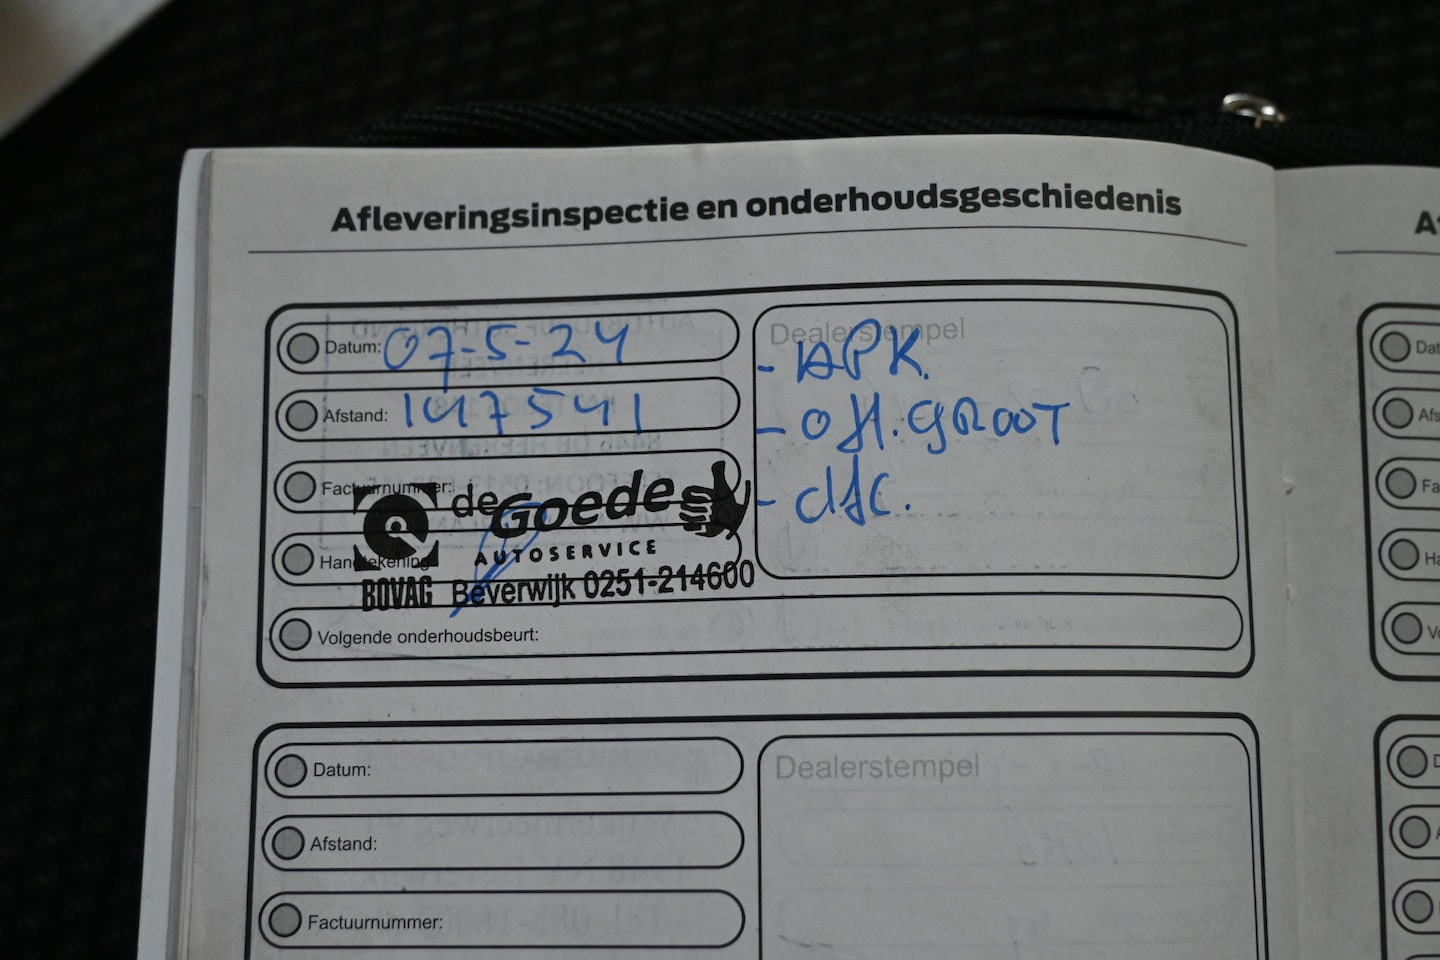 Afleveringsinspectie en onderhoudsgeschiedenis
Datum: 07-5-24
Afstand: 147541
Factuurnummer:
Handtekening
de Goede
AUTOSERVICE
BOVAG Beverwijk 0251-214600
Volgende onderhoudsbeurt:
Dealerstempel
- APK.
- OH. GROOT
Datum:
Afstand:
Factuurnummer:
Dealerstempel